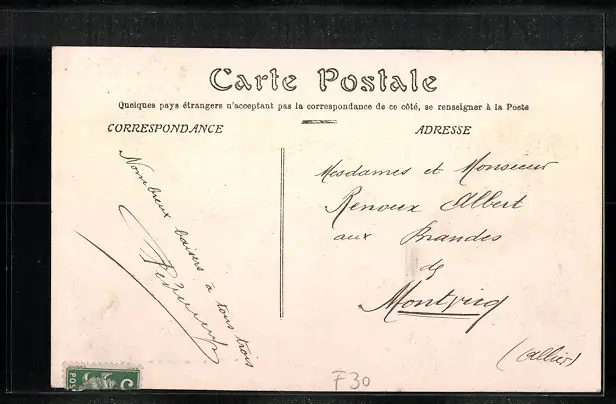 Carte Postale
Quelques pays étrangers n'acceptent pas la correspondance de ce côté, se renseigner à la Poste
CORRESPONDANCE
ADRESSE
Nombreux baisers à tous trois
Mesdames et Monsieur
Renoux Albert
aux Brandes
de
Montvicq
(Allier)
POS
F30